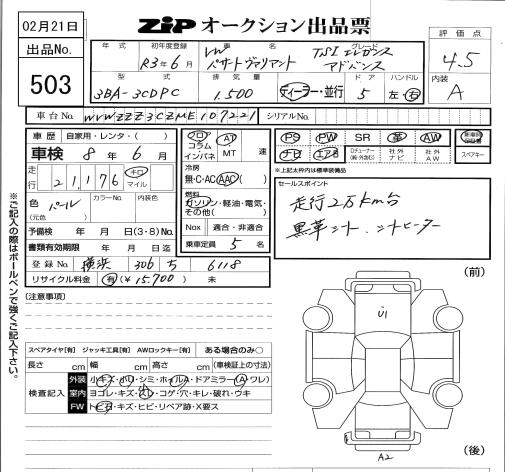 02月21日
ZIP オークション出品票
出品No.
503
評価点
4.5
内装
A
年式
初年度登録
R3年6月
車名
VW
パサートヴァリアント
グレード
TSI エレガンス
アドバンス
型式
3BA-3CDPC
排気量
1.500
ディーラー・並行
ドア
5
ハンドル
左・右
車台No.
WVWZZZ3CZME107221
シリアルNo.
車歴
自家用・レンタ・( )
車検 8年 6月
走行
21,176
キロ
マイル
色
パール
(元色)
カラーNo.
内装色
予備検 年 月 日(3・8)No.
書類有効期限 年 月 日迄
登録No. 横浜 306 ち 6118
リサイクル料金 有(¥15.700) 未
フロア
コラム
インパネ
AT
MT
速
冷房
無・C・AC・AAC( )
燃料
ガソリン・軽油・電気・
その他( )
Nox
適合・非適合
乗車定員 5 名
PS
PW
SR
革
AW
新車時保証書
ナビ
エアB
Dチューナー
(純・外含む)
社外
ナビ
社外
AW
スペアキー
*上記太枠内は標準装備品
セールスポイント
走行2万km台
黒革シート、シートヒーター
[注意事項]
スペアタイヤ[有] ジャッキ工具[有] AWロックキー[有] ある場合のみ○
長さ cm 幅 cm 高さ cm (車検証上の寸法)
検査記入
外装 小キズ・小U・シミ・ホイルA・ドアミラー(A・ワレ)
室内 ヨゴレ・キズ・スレ・コゲ・穴・キレ・破れ・ウキ
FW トビ石・キズ・ヒビ・リペア跡・X要ス
(前)
U1
(後)
A2
※ご記入の際はボールペンで強くご記入下さい。